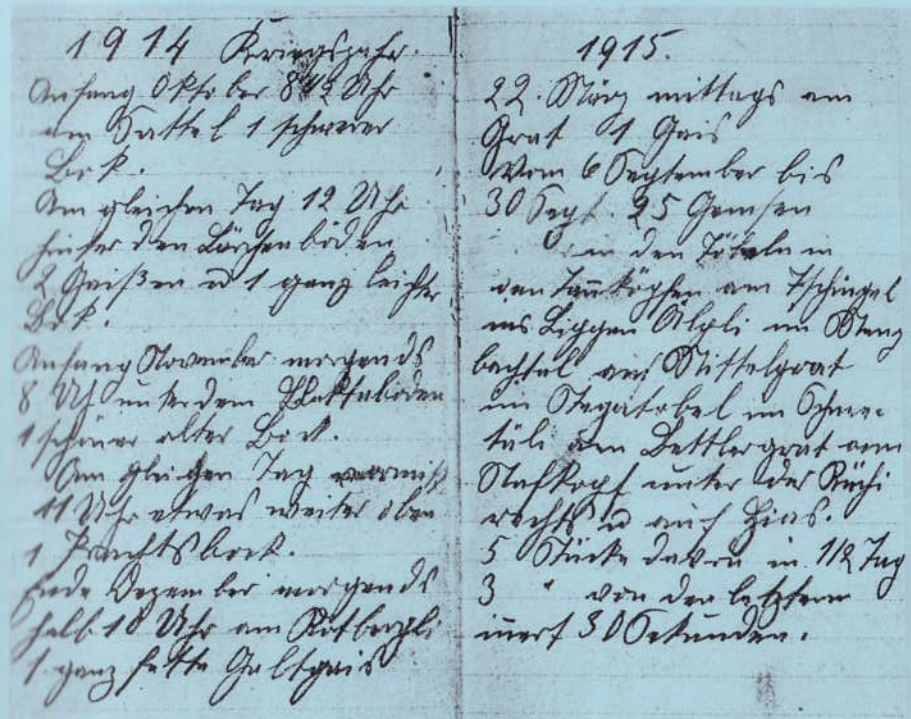 1914 Kriegsjahr.
Anfang Oktober 8 1/2 Uhr
am Sattel 1 schwerer
Bok.
Am gleichen Tag 12 Uhr
hinter den Lärchenböden
2 Geißen u 1 ganz leichter
Bok.
Anfang November morgends
8 Uhr unter dem boden
1 schöner alter Bock.
Am gleichen Tag vormitt
11 Uhr etwas weiter oben
1 Prachtsbock.
Ende Dezember morgends
halb 10 Uhr am
1 ganz fette Galtgais
1915.
22. März mittags am
Grat 1 Gais
Vom 6 September bis
30 Sept. 25 Gemsen
in den Töbeln in
den Tannköpfen am Tschingel
ins Liggen Älpli im
bachtal auf Mittelgrat
im Stegatobel im Schnee-
täli am Bettlergrat am
Nafkopf unter der Rüchi
rechts u auf
5 Stücke davon in 1/2 Tag
3 " von den letztern
innert 30 Sekunden.